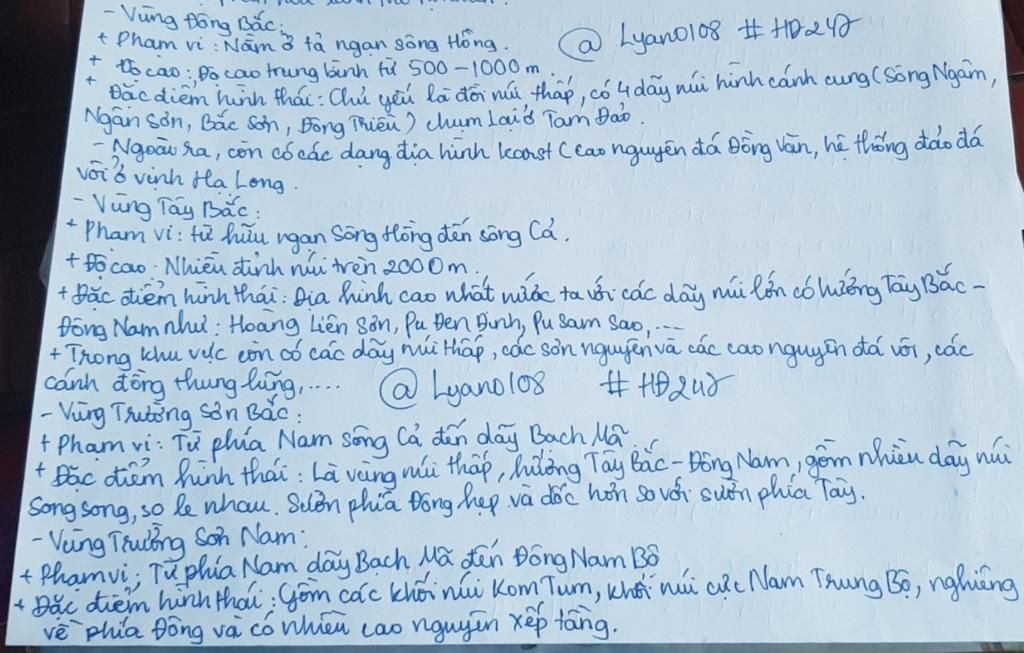 - Vùng Đông Bắc:
+ Phạm vi: Nằm ở tả ngạn sông Hồng. @ Lyano108 # HĐ247
+ Độ cao: Độ cao trung bình từ 500-1000m
+ Đặc điểm hình thái: Chủ yếu là đồi núi thấp, có 4 dãy núi hình cánh cung (Sông Ngâm,
Ngân Sơn, Bắc Sơn, Đông Triều) chụm lại ở Tam Đảo.
- Ngoài ra, còn có các dạng địa hình karst (cao nguyên đá Đồng Văn, hệ thống đảo đá
vôi ở vịnh Hạ Long.
- Vùng Tây Bắc:
+ Phạm vi: từ hữu ngạn sông Hồng đến sông Cả.
+ Độ cao: Nhiều đỉnh núi trên 2000m.
+ Đặc điểm hình thái: Địa hình cao nhất nước ta với các dãy núi lớn có hướng Tây Bắc -
Đông Nam như: Hoàng Liên Sơn, Pu Đen Đinh, Pu Sam Sao,....
+ Trong khu vực còn có các dãy núi thấp, các sơn nguyên và các cao nguyên đá vôi, các
cánh đồng thung lũng,.... @ Lyano108 # HĐ247
- Vùng Trường Sơn Bắc:
+ Phạm vi: Từ phía Nam sông Cả đến dãy Bạch Mã
+ Đặc điểm hình thái: Là vùng núi thấp, hướng Tây Bắc - Đông Nam, gồm nhiều dãy núi
song song, so le nhau. Sườn phía Đông hẹp và dốc hơn so với sườn phía Tây.
- Vùng Trường Sơn Nam:
+ Phạm vi: Từ phía Nam dãy Bạch Mã đến Đông Nam Bộ
+ Đặc điểm hình thái: Gồm các khối núi Kom Tum, khối núi cực Nam Trung Bộ, nghiêng
về phía Đông và có nhiều cao nguyên xếp tầng.